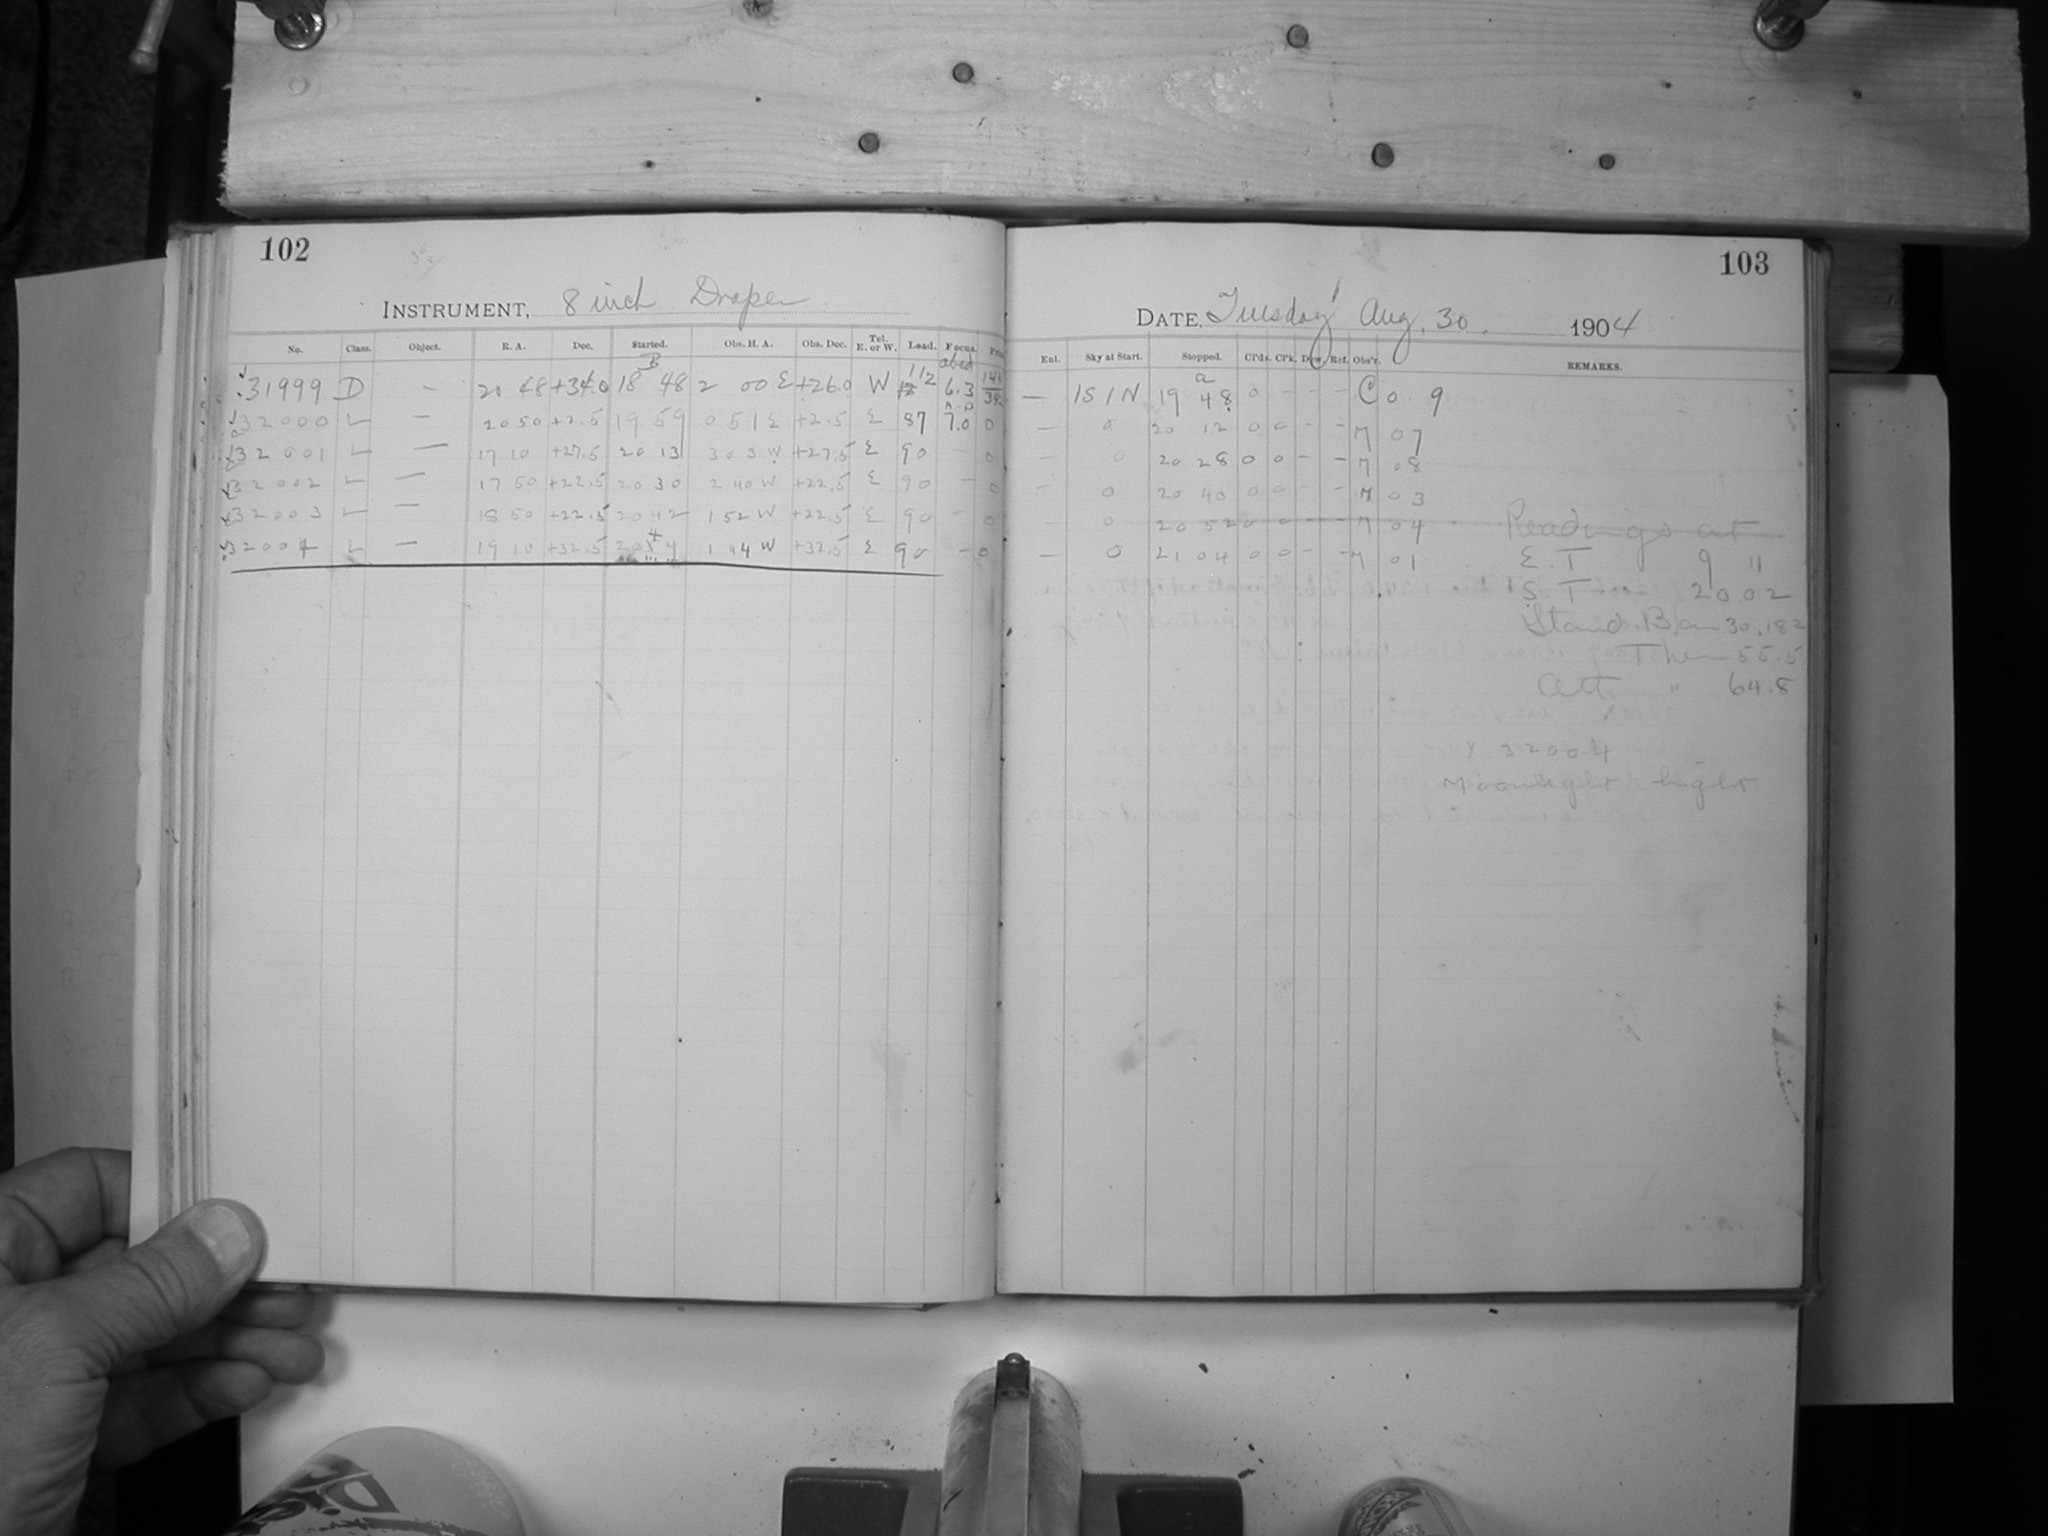 102
INSTRUMENT, 8 inch Draper
No. Class. Object. R. A. Dec. Started. Obs. H. A. Obs. Dec. Tel. E. or W. Load. Focus.
31999 D — 20 48 +34.0 18 48 2 00 E +26.0 W 112 6.3
32000 L — 20 50 +2.5 19 59 0 51 E +2.5 E 87 7.0 0
32001 L — 17 10 +27.5 20 13 3 03 W +27.5 E 90 — 0
32002 L — 17 50 +22.5 20 30 2 40 W +22.5 E 90 — 0
32003 L — 18 50 +22.5 20 42 1 52 W +22.5 E 90 — 0
32004 L — 19 10 +32.5 20 54 1 44 W +32.5 E 90 — 0
103
DATE, Tuesday Aug. 30. 1904
Ent. Sky at Start. Stopped. Cl'ds. Cl'k. Dew. Ref. Obs'r. REMARKS.
— 1S 1N 19 48 0 - - - Co. 9
— 0 20 12 0 0 - - M 07
— 0 20 28 0 0 - - M 08
— 0 20 40 0 0 - - M 03
— 0 20 52 0 0 - - M 04 Readings at
— 0 21 04 0 0 - - M 01 E. T 9 11
S. T 20 02
Stand. Bar 30.182
Ther 55.5
Att. " 64.8
x 32004
Moonlight bright
Die